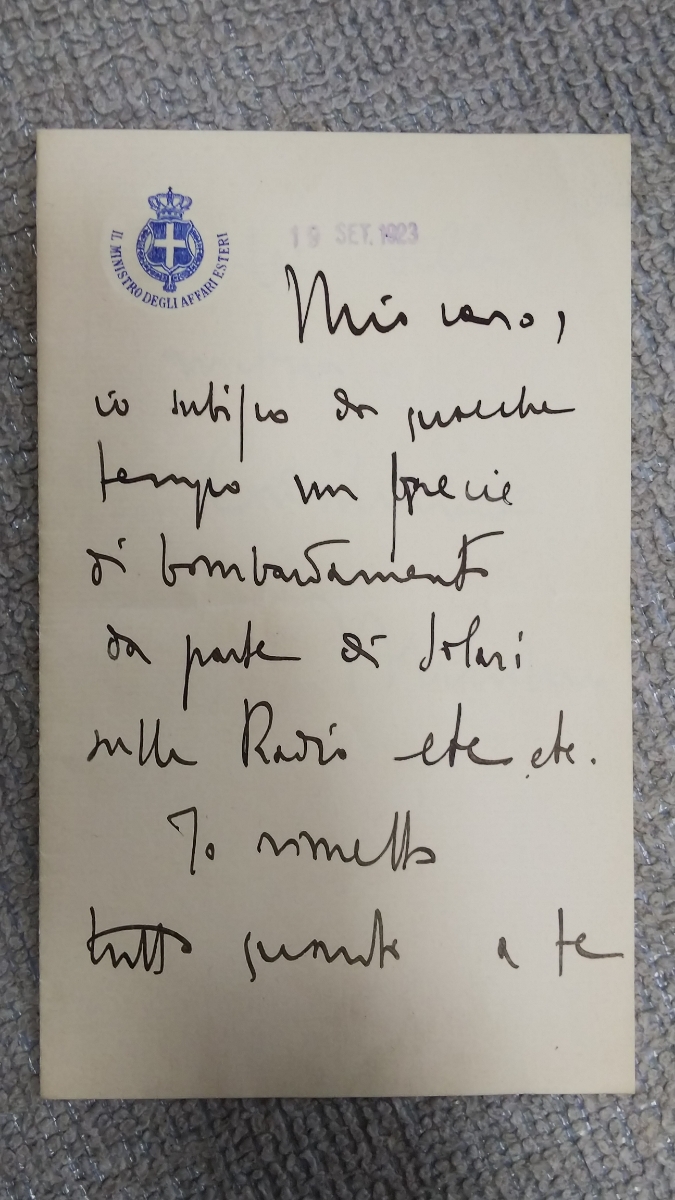 IL MINISTRO DEGLI AFFARI ESTERI
19 SET. 1923
Mio caro,
io subisco da qualche
tempo un specie
di bombardamento
da parte di Solari
sulla Radio etc etc.
Io rimetto
tutto quanto a te